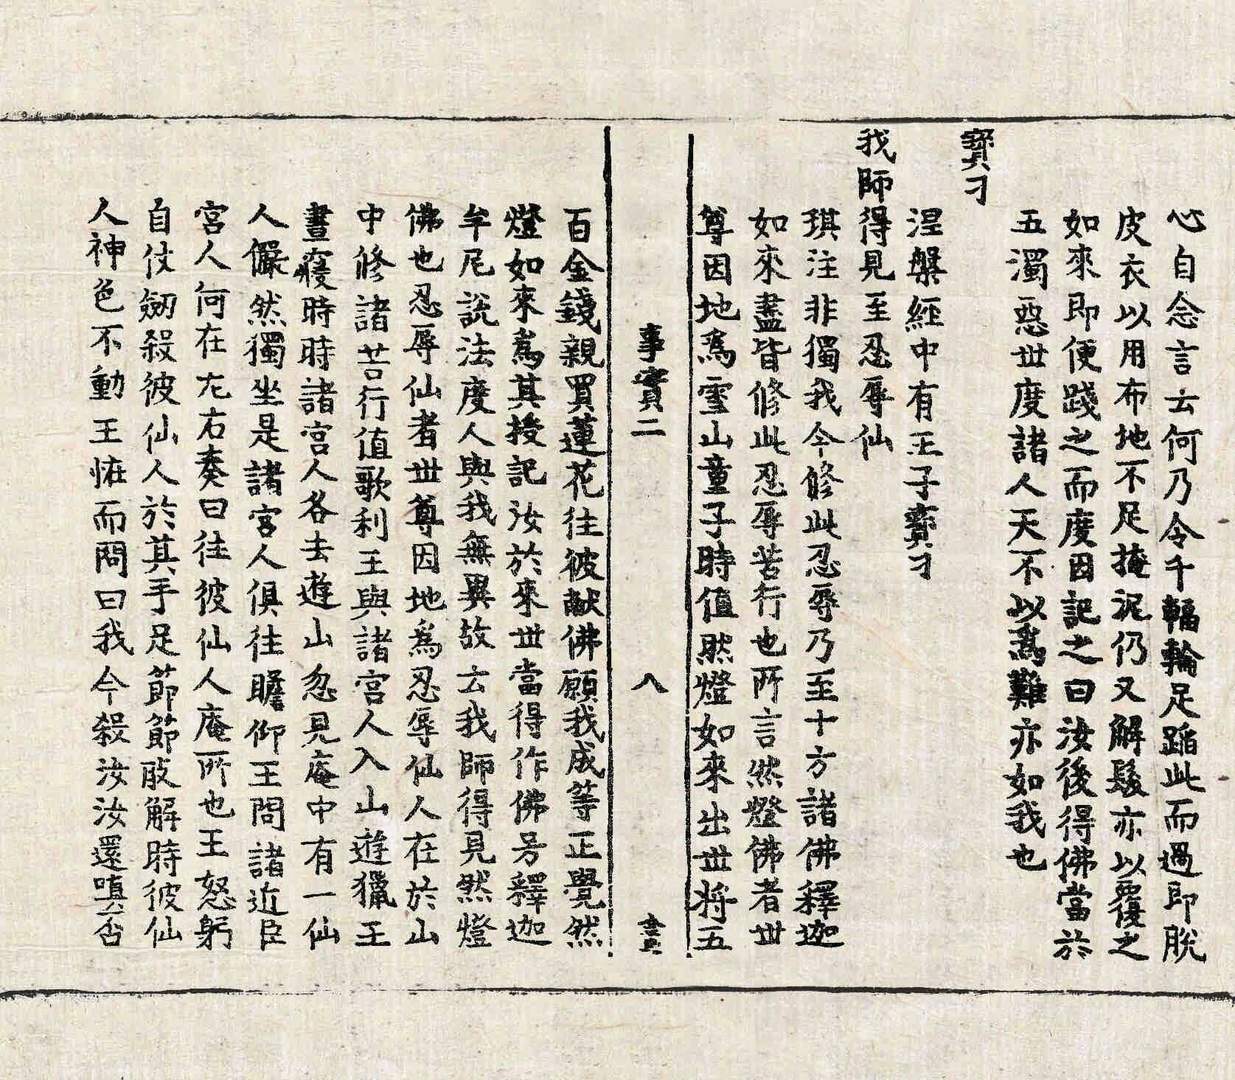 心自念言云何乃令千輻輪足蹈此而過即脫
皮衣以用布地不足掩泥仍又解髮亦以覆之
如來即便踐之而度因記之曰汝後得佛當於
五濁惡世度諸人天不以爲難亦如我也
寶刁
涅槃經中有王子寶刁
我師得見至忍辱仙
琪注非獨我今修此忍辱乃至十方諸佛釋迦
如來盡皆修此忍辱苦行也所言然燈佛者世
尊因地爲雪山童子時值然燈如來出世將五
事實二 八
百金錢親買蓮花往彼献佛願我成等正覺然
燈如來爲其授記汝於來世當得作佛号釋迦
牟尼說法度人與我無異故云我師得見然燈
佛也忍辱仙者世尊因地爲忍辱仙人在於山
中修諸苦行值歌利王與諸宮人入山遊獵王
晝寢時時諸宮人各去遊山忽見庵中有一仙
人儼然獨坐是諸宮人俱往瞻仰王問諸近臣
宮人何在左右奏曰往彼仙人庵所也王怒躬
自仗劒殺彼仙人於其手足節節支解時彼仙
人神色不動王恠而問曰我今殺汝汝還嗔否